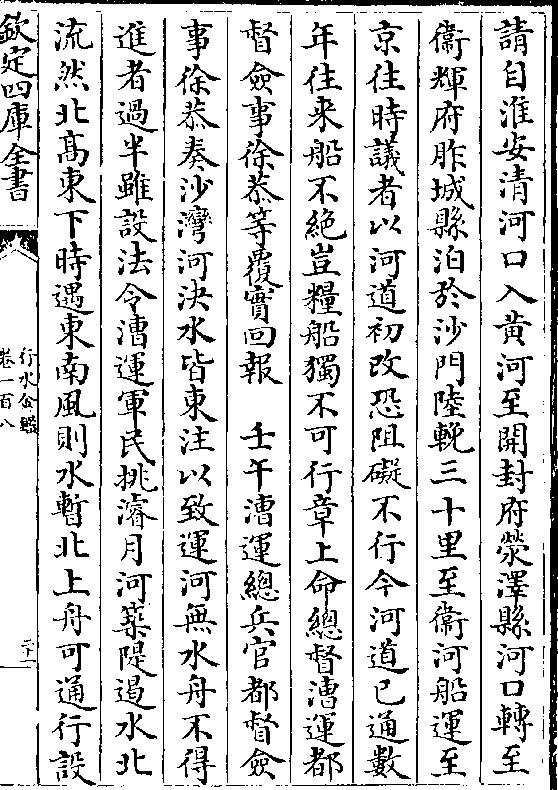 請自淮安清河口入黄河至開封府滎澤縣河口轉至
衛輝府胙城縣泊於沙門陸輓三十里至衛河船運至
京往時議者以河道初改恐阻礙不行今河道已通數
年往来船不絶豈糧船獨不可行章上命總督漕運都
督僉事徐恭等覆實回報　壬午漕運總兵官都督僉
事徐恭奏沙灣河決水皆東注以致運河無水舟不得
進者過半雖設法令漕運軍民挑濬月河築隄遏水北
流然北髙東下時遇東南風則水暫北上舟可通行設
欽定四庫全書
行水金鑑
卷一百八